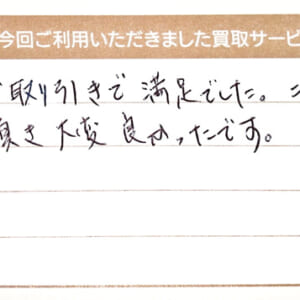 今回ご利用いただきました買取サービ
取り引きで 満足でした。こ
頂き 大変 良かったです。